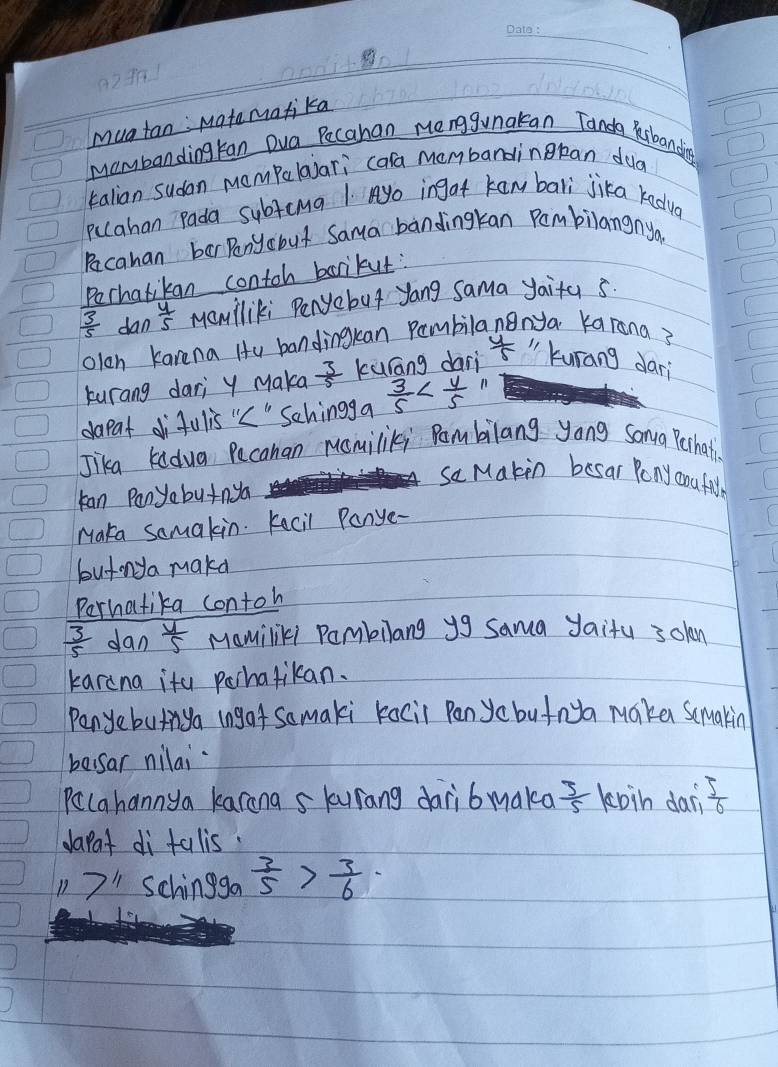 Date :
Muatan : Matamatika
Mambandingkan Dua Pacahan Menggunakan Tanda Perbanding
Kalian sudah Mempelajari cara Membandingkan dua
Pecahan Pada subtema 1. Ayo ingat kembali jika kedua
Pecahan berpenyebut sama bandingkan Pembilangnya.
Perhatikan contoh berikut:
3/5 dan 4/5 Memiliki Penyebut yang sama yaitu 5.
Oleh karena itu bandingkan Pembilangnya Karena 3
kurang dari 4 Maka 3/5 kurang dari 4/5 " kurang dari
dapat di tulis "<" Sehingga 3/5 < 4/5 "
Jika kedua Pecahan Memiliki Pembilang yang sama Perhati-
kan Penyebutnya semakin besar Penyebutnya
Maka semakin. kecil Penye-
butnya Maka
Perhatika contoh
3/5 dan 4/5 Memiliki Pembilang yg sama yaitu 3 oleh
karena itu perhatikan.
Penyebutnya ingat semaki kecil Penyebutnya Maka semakin
besar nilai.
Pecahannya karena 5 kurang dari 6 maka 3/5 lebih dari 3/6
dapat di tulis.
" >" sehingga 3/5 > 3/6.